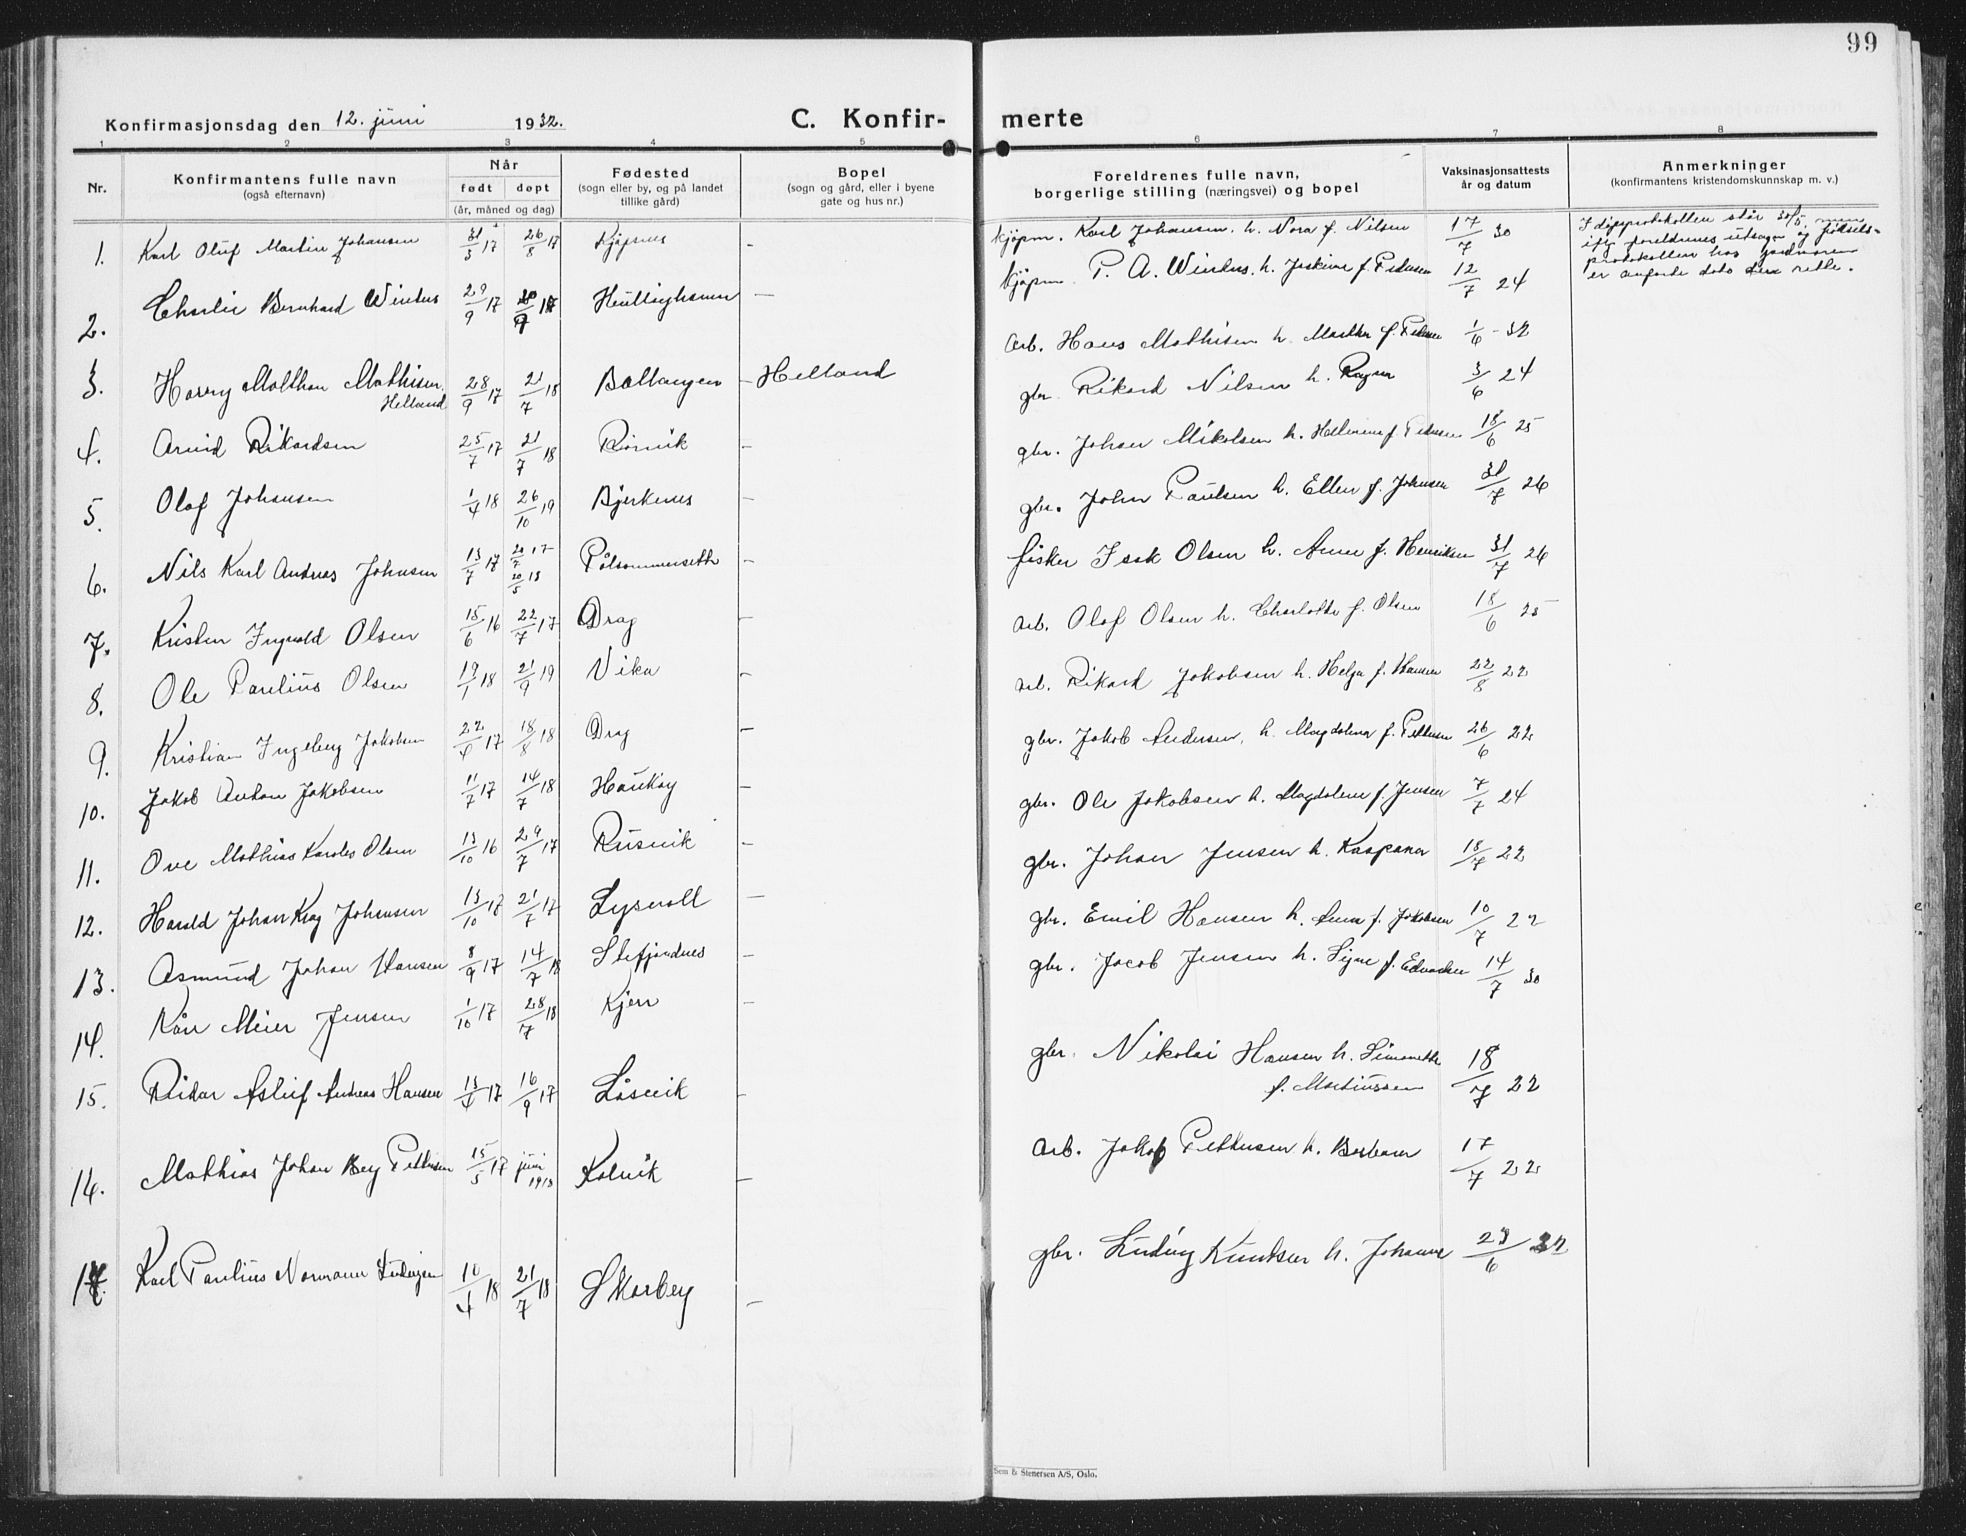 99
Konfirmasjonsdag den 12. juni 1932.
C. Konfir- merte
1 2 3 4 5 6 7 8
Nr.
Konfirmantens fulle navn
(også efternavn)
Når
født døpt
(år, måned og dag)
Fødested
(sogn eller by, og på landet
tillike gård)
Bopel
(sogn og gård, eller i byene
gate og hus nr.)
Foreldrenes fulle navn,
borgerlige stilling (næringsvei) og bopel
Vaksinasjonsattests
år og datum
Anmerkninger
(konfirmantens kristendomskunnskap m. v.)
1. Karl Oluf Martin Johansen 31/3 17 26/8 17 Kjøpsnes - Kjøpm. Karl Johansen. h. Nora f. Nilsen 17/7 30
I døpeprotokollen står 30/5, men
iflg. foreldrenes utsagn og fødsels-
protokollen hos jordmoren
er anførte dato den rette.
2. Charlie Bernhard 29/9 17 - Kjøpm. P. A. h. f. Pedersen 12/7 24
3. Harry Malthon Mathisen 28/9 17 21/7 18 Ballangen - Helland Arb. Hans Mathisen h. Marthe f. 1/6 - 32
Helland
4. Arvid Rikardsen 25/7 17 21/7 18 - gbr. Rikard Nilsen h. Ragna 3/6 24
5. Olaf Johansen 1/4 18 26/10 19 Bjerkenes - gbr. Johan Mikolsen h. f. Pedersen 18/6 25
6. Nils Karl Andreas Johnsen 13/7 17 20/7 17 20/5 18 - gbr. John Paulsen h. Ellen f. Johnsen 31/7 26
7. Kristen Ingvald Olsen 15/6 16 22/7 17 Drag - fisker Isak Olsen h. Anna f. Henriksen 31/7 26
8. Ole Paulius Olsen 19/1 18 21/9 19 Vika - Arb. Olaf Olsen h. Charlotte f. Olsen 18/6 25
9. Kristian Ingeberg Jakobsen 22/4 17 18/8 18 Drag - Arb. Rikard Jakobsen h. Helga f. Hansen 22/8 22
10. Jakob Anton Jakobsen 11/7 17 14/7 18 Haukøy - gbr. Jakob Andersen, h. Magdalena f. Pettersen 26/6 22
11. Ove Mathias Olsen 13/10 16 29/7 17 Rusvik - gbr. Ole Jakobsen h. Magdalene f. Jensen 7/7 24
12. Harald Johan Johansen 13/10 17 21/7 17 Lysvoll - gbr. Johan Jensen h. Kaspara 18/7 22
13. Asmund Johan Hansen 8/9 17 14/7 18 Stefjordnes - gbr. Emil Hansen h. Anna f. Jakobsen 10/7 22
14. Kåre Meier Jensen 1/10 17 28/7 18 Kjerr - gbr. Jacob Jensen h. Signe f. Edvardsen 14/7 30
15. Reidar Asluf Andreas Hansen 13/4 17 16/9 17 Låsvik - gbr. Nikolai Hansen h. Simonette 18/7 22
f. Martinussen
16. Mathias Johan Berg Pettersen 15/5 17 juni 1918 Kalvik - Arb. Jakob Pettersen h. Barbara 17/7 22
17. Karl Paulius Normann Ludvigsen 10/4 18 21/7 18 Skarberg - gbr. Ludvig Knutsen h. Johanna 23/6 32
Sem & Stenersen A/S, Oslo.